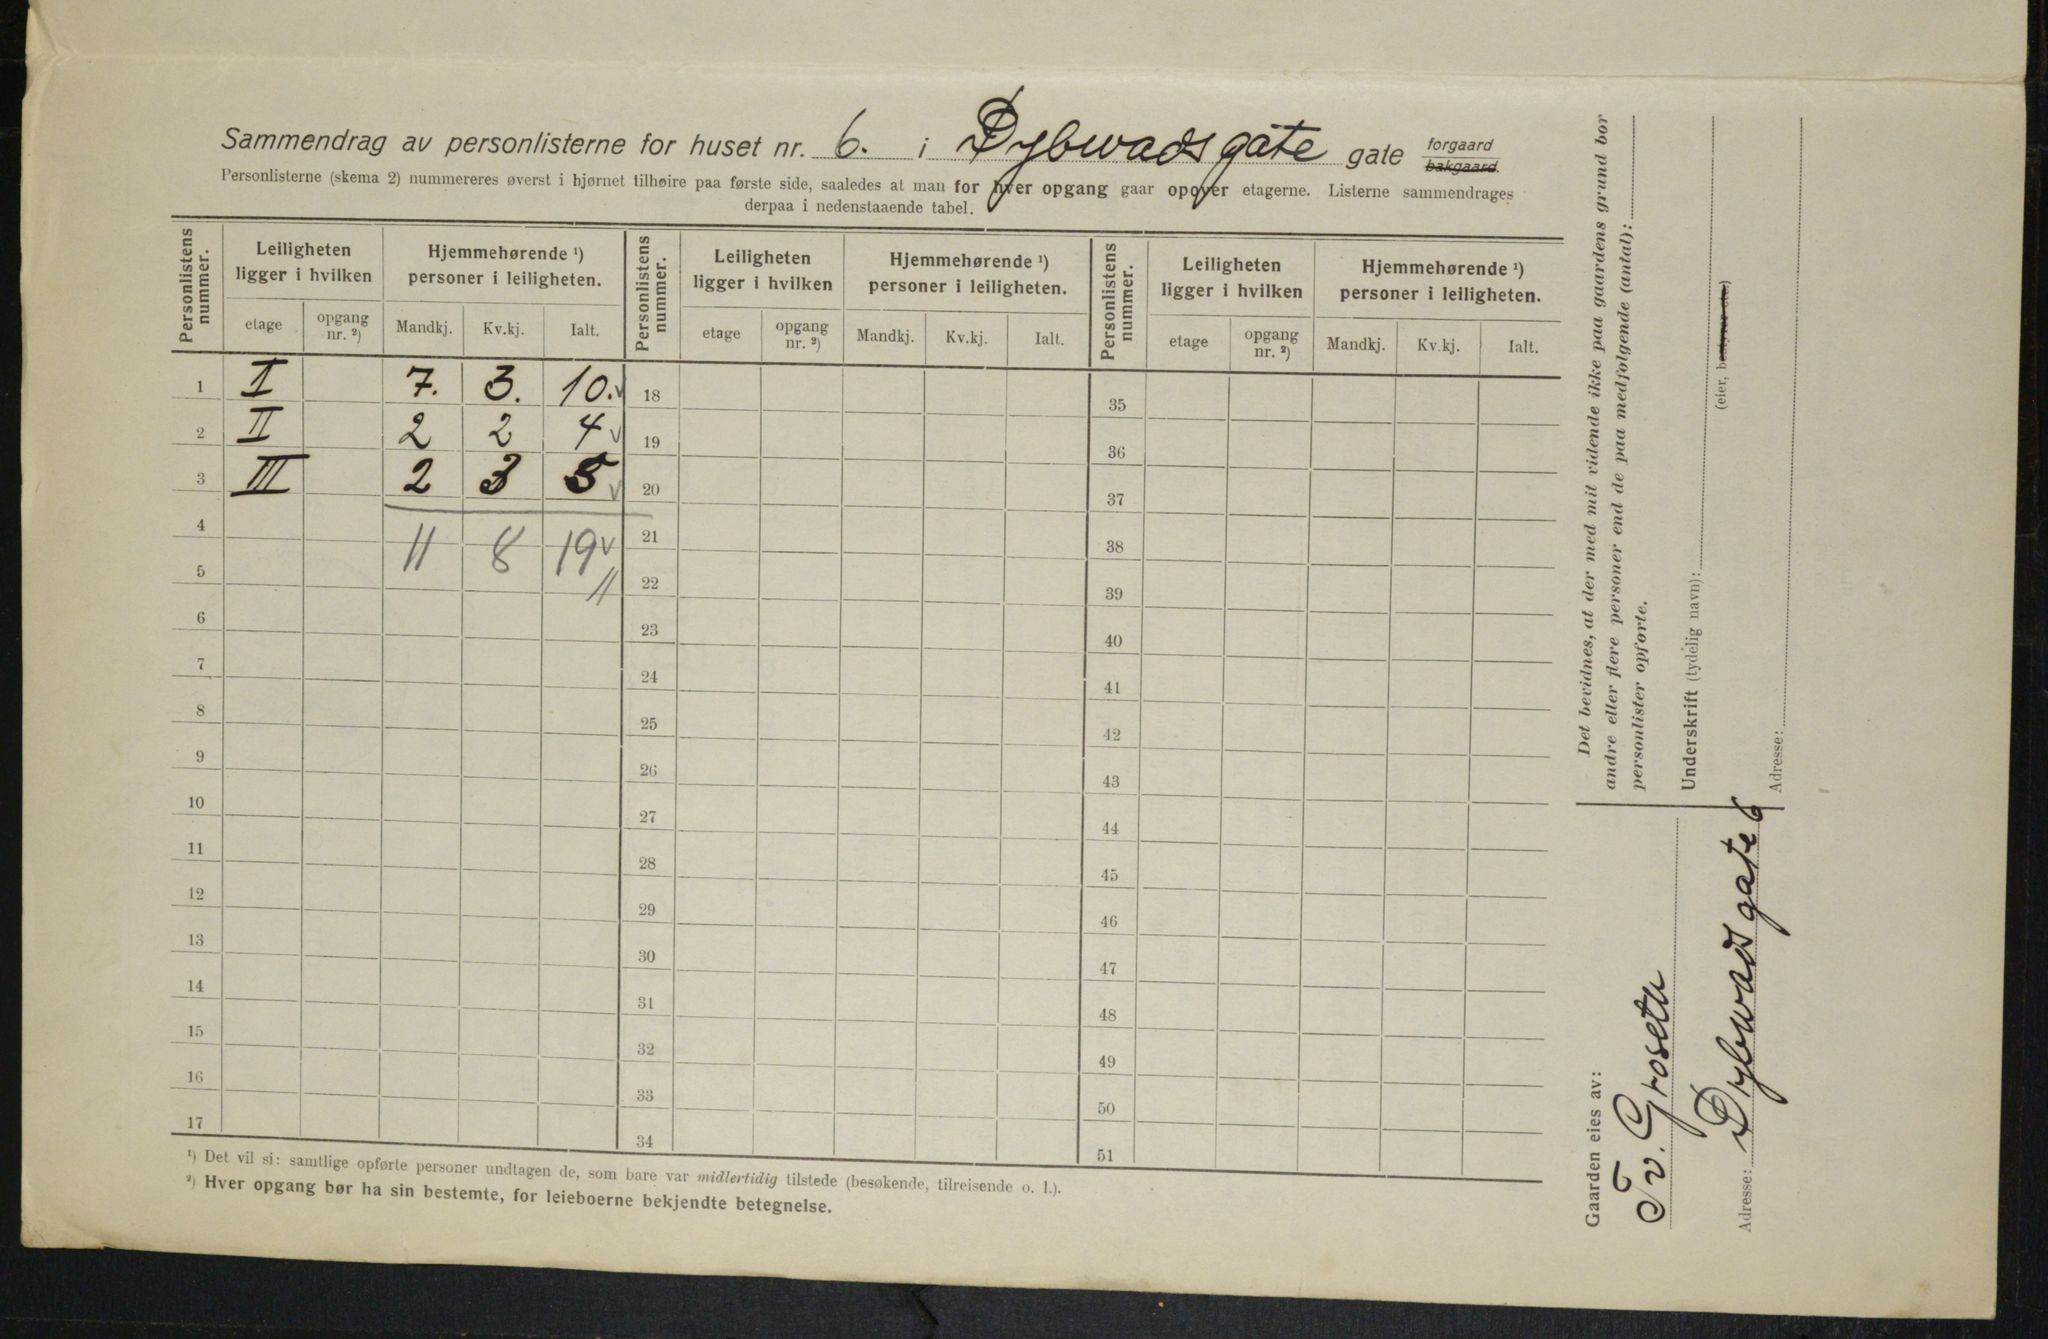 Sammendrag av personlisterne for huset nr. 6. i Dybwadsgate gate forgaard bakgaard.
Personlisterne (skema 2) nummereres øverst i hjørnet tilhøire paa første side, saaledes at man for hver opgang gaar opover etagerne. Listerne sammendrages
derpaa i nedenstaaende tabel.
Personlistens nummer. Leiligheten ligger i hvilken Hjemmehørende ¹) personer i leiligheten. Personlistens nummer. Leiligheten ligger i hvilken Hjemmehørende ¹) personer i leiligheten. Personlistens nummer. Leiligheten ligger i hvilken Hjemmehørende ¹) personer i leiligheten.
etage opgang nr. ²) Mandkj. Kv.kj. Ialt. etage opgang nr. ²) Mandkj. Kv.kj. Ialt. etage opgang nr. ²) Mandkj. Kv.kj. Ialt.
1 I 7. 3. 10. v 18 35
2 II 2 2 4 v 19 36
3 III 2 3 5 v 20 37
4 11 8 19 v 21 38
5 22 39
6 23 40
7 24 41
8 25 42
9 26 43
10 27 44
11 28 45
12 29 46
13 30 47
14 31 48
15 32 49
16 33 50
17 34 51
¹) Det vil si: samtlige opførte personer undtagen de, som bare var midlertidig tilstede (besøkende, tilreisende o. l.).
²) Hver opgang bør ha sin bestemte, for leieboerne bekjendte betegnelse.
Det bevidnes, at der med mit vidende ikke paa gaardens grund bor
andre eller flere personer end de paa medfølgende (antal):
personlister opførte.
Underskrift (tydelig navn):
(eier, bestyrer etc.)
Adresse:
Gaarden eies av:
Tv. Groseth
Adresse: Dybwadsgate 6